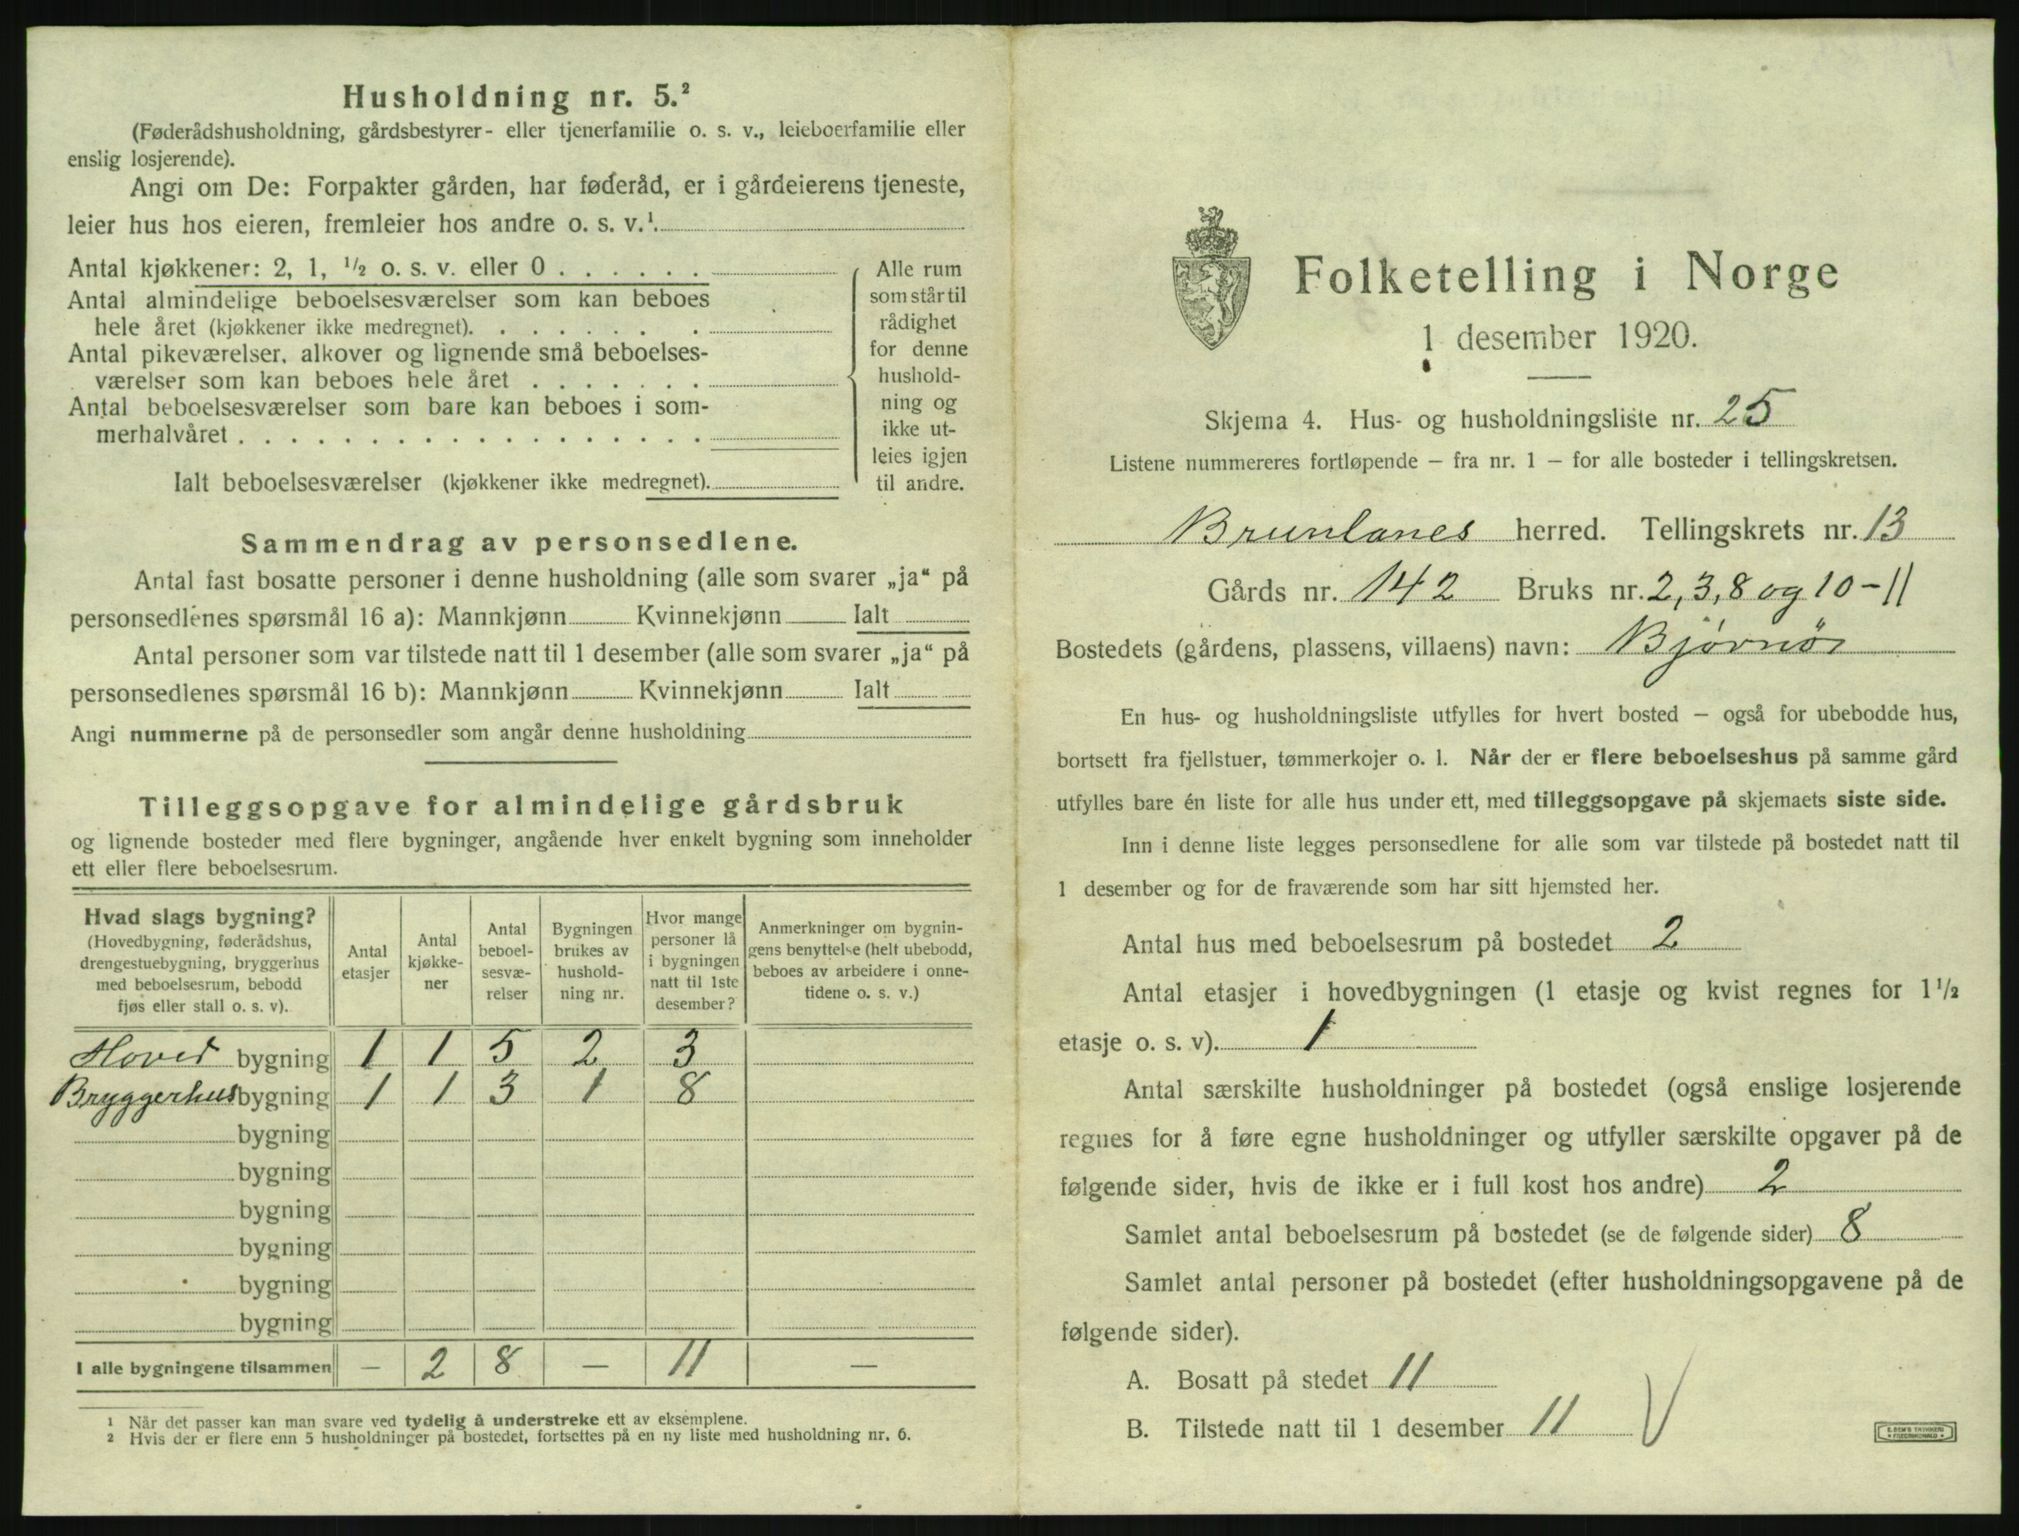 Husholdning nr. 5.²
(Føderådshusholdning, gårdsbestyrer- eller tjenerfamilie o. s. v., leieboerfamilie eller
enslig losjerende).
Angi om De: Forpakter gården, har føderåd, er i gårdeierens tjeneste,
leier hus hos eieren, fremleier hos andre o. s. v.¹.
Antal kjøkkener: 2, 1, ½ o. s. v. eller 0 . . . . . .
Antal almindelige beboelsesværelser som kan beboes
hele året (kjøkkener ikke medregnet). . . . . . . .
Antal pikeværelser, alkover og lignende små beboelses-
værelser som kan beboes hele året . . . . . . .
Antal beboelsesværelser som bare kan beboes i som-
merhalvåret . . . . . . . . . . . . . . . . . .
Ialt beboelsesværelser (kjøkkener ikke medregnet).
Alle rum
som står til
rådighet
for denne
hushold-
ning og
ikke ut-
leies igjen
til andre.
Sammendrag av personsedlene.
Antal fast bosatte personer i denne husholdning (alle som svarer „ja“ på
personsedlenes spørsmål 16 a): Mannkjønn Kvinnekjønn Ialt
Antal personer som var tilstede natt til 1 desember (alle som svarer „ja“ på
personsedlenes spørsmål 16 b): Mannkjønn Kvinnekjønn Ialt
Angi nummerne på de personsedler som angår denne husholdning
Tilleggsopgave for almindelige gårdsbruk
og lignende bosteder med flere bygninger, angående hver enkelt bygning som inneholder
ett eller flere beboelsesrum.
Hvad slags bygning?
(Hovedbygning, føderådshus,
drengestuebygning, bryggerhus
med beboelsesrum, bebodd
fjøs eller stall o. s. v).
Antal
etasjer
Antal
kjøkke-
ner
Antal
beboel-
sesvæ-
relser
Bygningen
brukes av
hushold-
ning nr.
Hvor mange
personer lå
i bygningen
natt til 1ste
desember?
Anmerkninger om bygnin-
gens benyttelse (helt ubebodd,
beboes av arbeidere i onne-
tidene o. s. v.)
Hoved bygning 1 1 5 2 3
Bryggerhus bygning 1 1 3 1 8
bygning
bygning
bygning
bygning
bygning
bygning
I alle bygningene tilsammen — 2 8 — 11 —
1 Når det passer kan man svare ved tydelig å understreke ett av eksemplene.
2 Hvis der er flere enn 5 husholdninger på bostedet, fortsettes på en ny liste med husholdning nr. 6.
Folketelling i Norge
1 desember 1920.
Skjema 4. Hus- og husholdningsliste nr. 25
Listene nummereres fortløpende – fra nr. 1 – for alle bosteder i tellingskretsen.
Brunlanes herred. Tellingskrets nr. 13
Gårds nr. 142 Bruks nr. 2, 3, 8 og 10-11
Bostedets (gårdens, plassens, villaens) navn: Bjørnøi
En hus- og husholdningsliste utfylles for hvert bosted – også for ubebodde hus,
bortsett fra fjellstuer, tømmerkojer o. l. Når der er flere beboelseshus på samme gård
utfylles bare én liste for alle hus under ett, med tilleggsopgave på skjemaets siste side.
Inn i denne liste legges personsedlene for alle som var tilstede på bostedet natt til
1 desember og for de fraværende som har sitt hjemsted her.
Antal hus med beboelsesrum på bostedet 2
Antal etasjer i hovedbygningen (1 etasje og kvist regnes for 1½
etasje o. s. v). 1
Antal særskilte husholdninger på bostedet (også enslige losjerende
regnes for å føre egne husholdninger og utfyller særskilte opgaver på de
følgende sider, hvis de ikke er i full kost hos andre) 2
Samlet antal beboelsesrum på bostedet (se de følgende sider) 8
Samlet antal personer på bostedet (efter husholdningsopgavene på de
følgende sider).
A. Bosatt på stedet 11
B. Tilstede natt til 1 desember 11 V